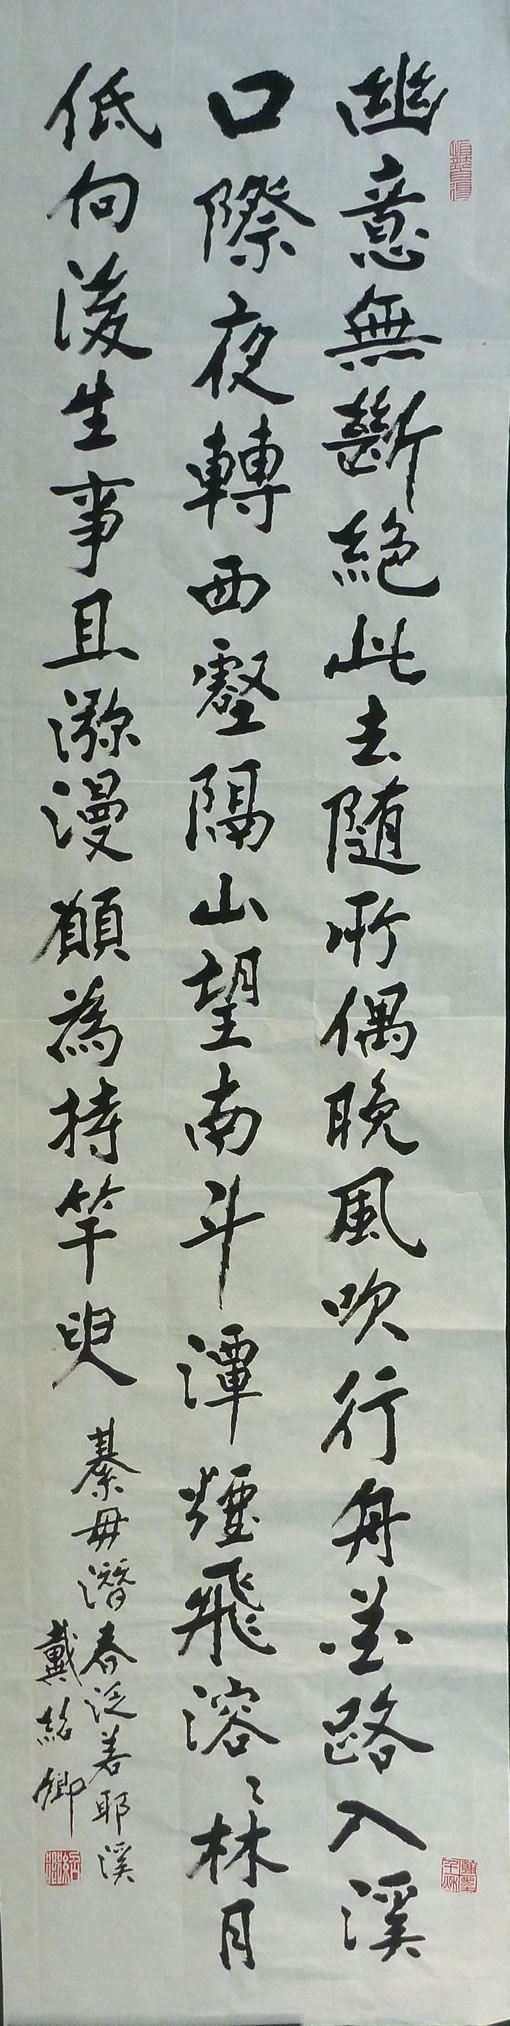 幽意無斷絕此去隨所偶晚風吹行舟花路入溪
口際夜轉西壑隔山望南斗潭煙飛溶〻林月
低向後生事且瀰漫願為持竿叟
綦毋潛春泛若耶溪
戴紹卿